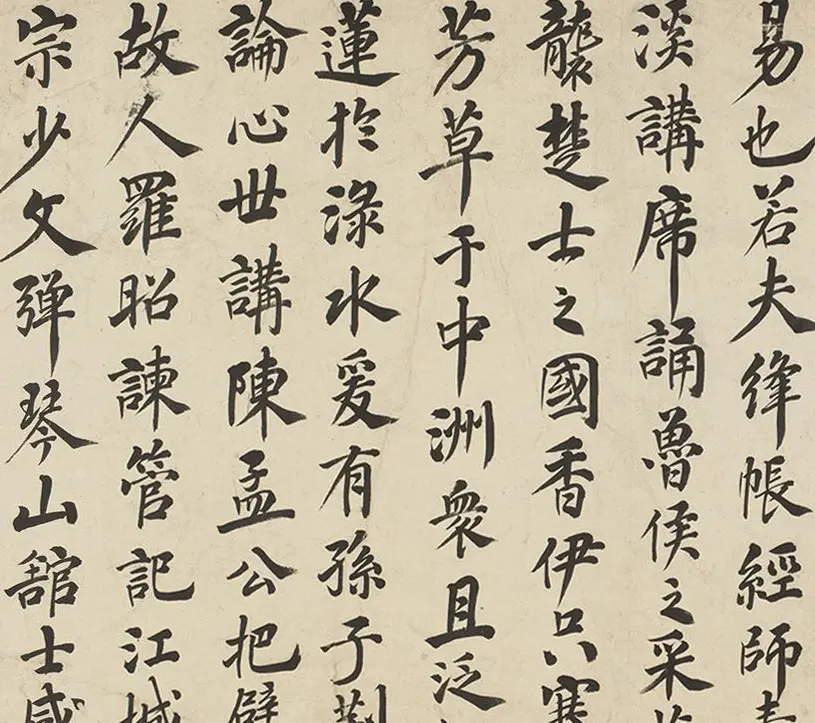 易也若夫絳帳經師
淡講席誦魯侯之采
襲楚士之國香伊只寒
芳草于中洲衆且泛
蓮於渌水爰有孫子荆
論心世講陳孟公把臂
故人羅昭諫管記江城
宗少文弹琴山舘士咸